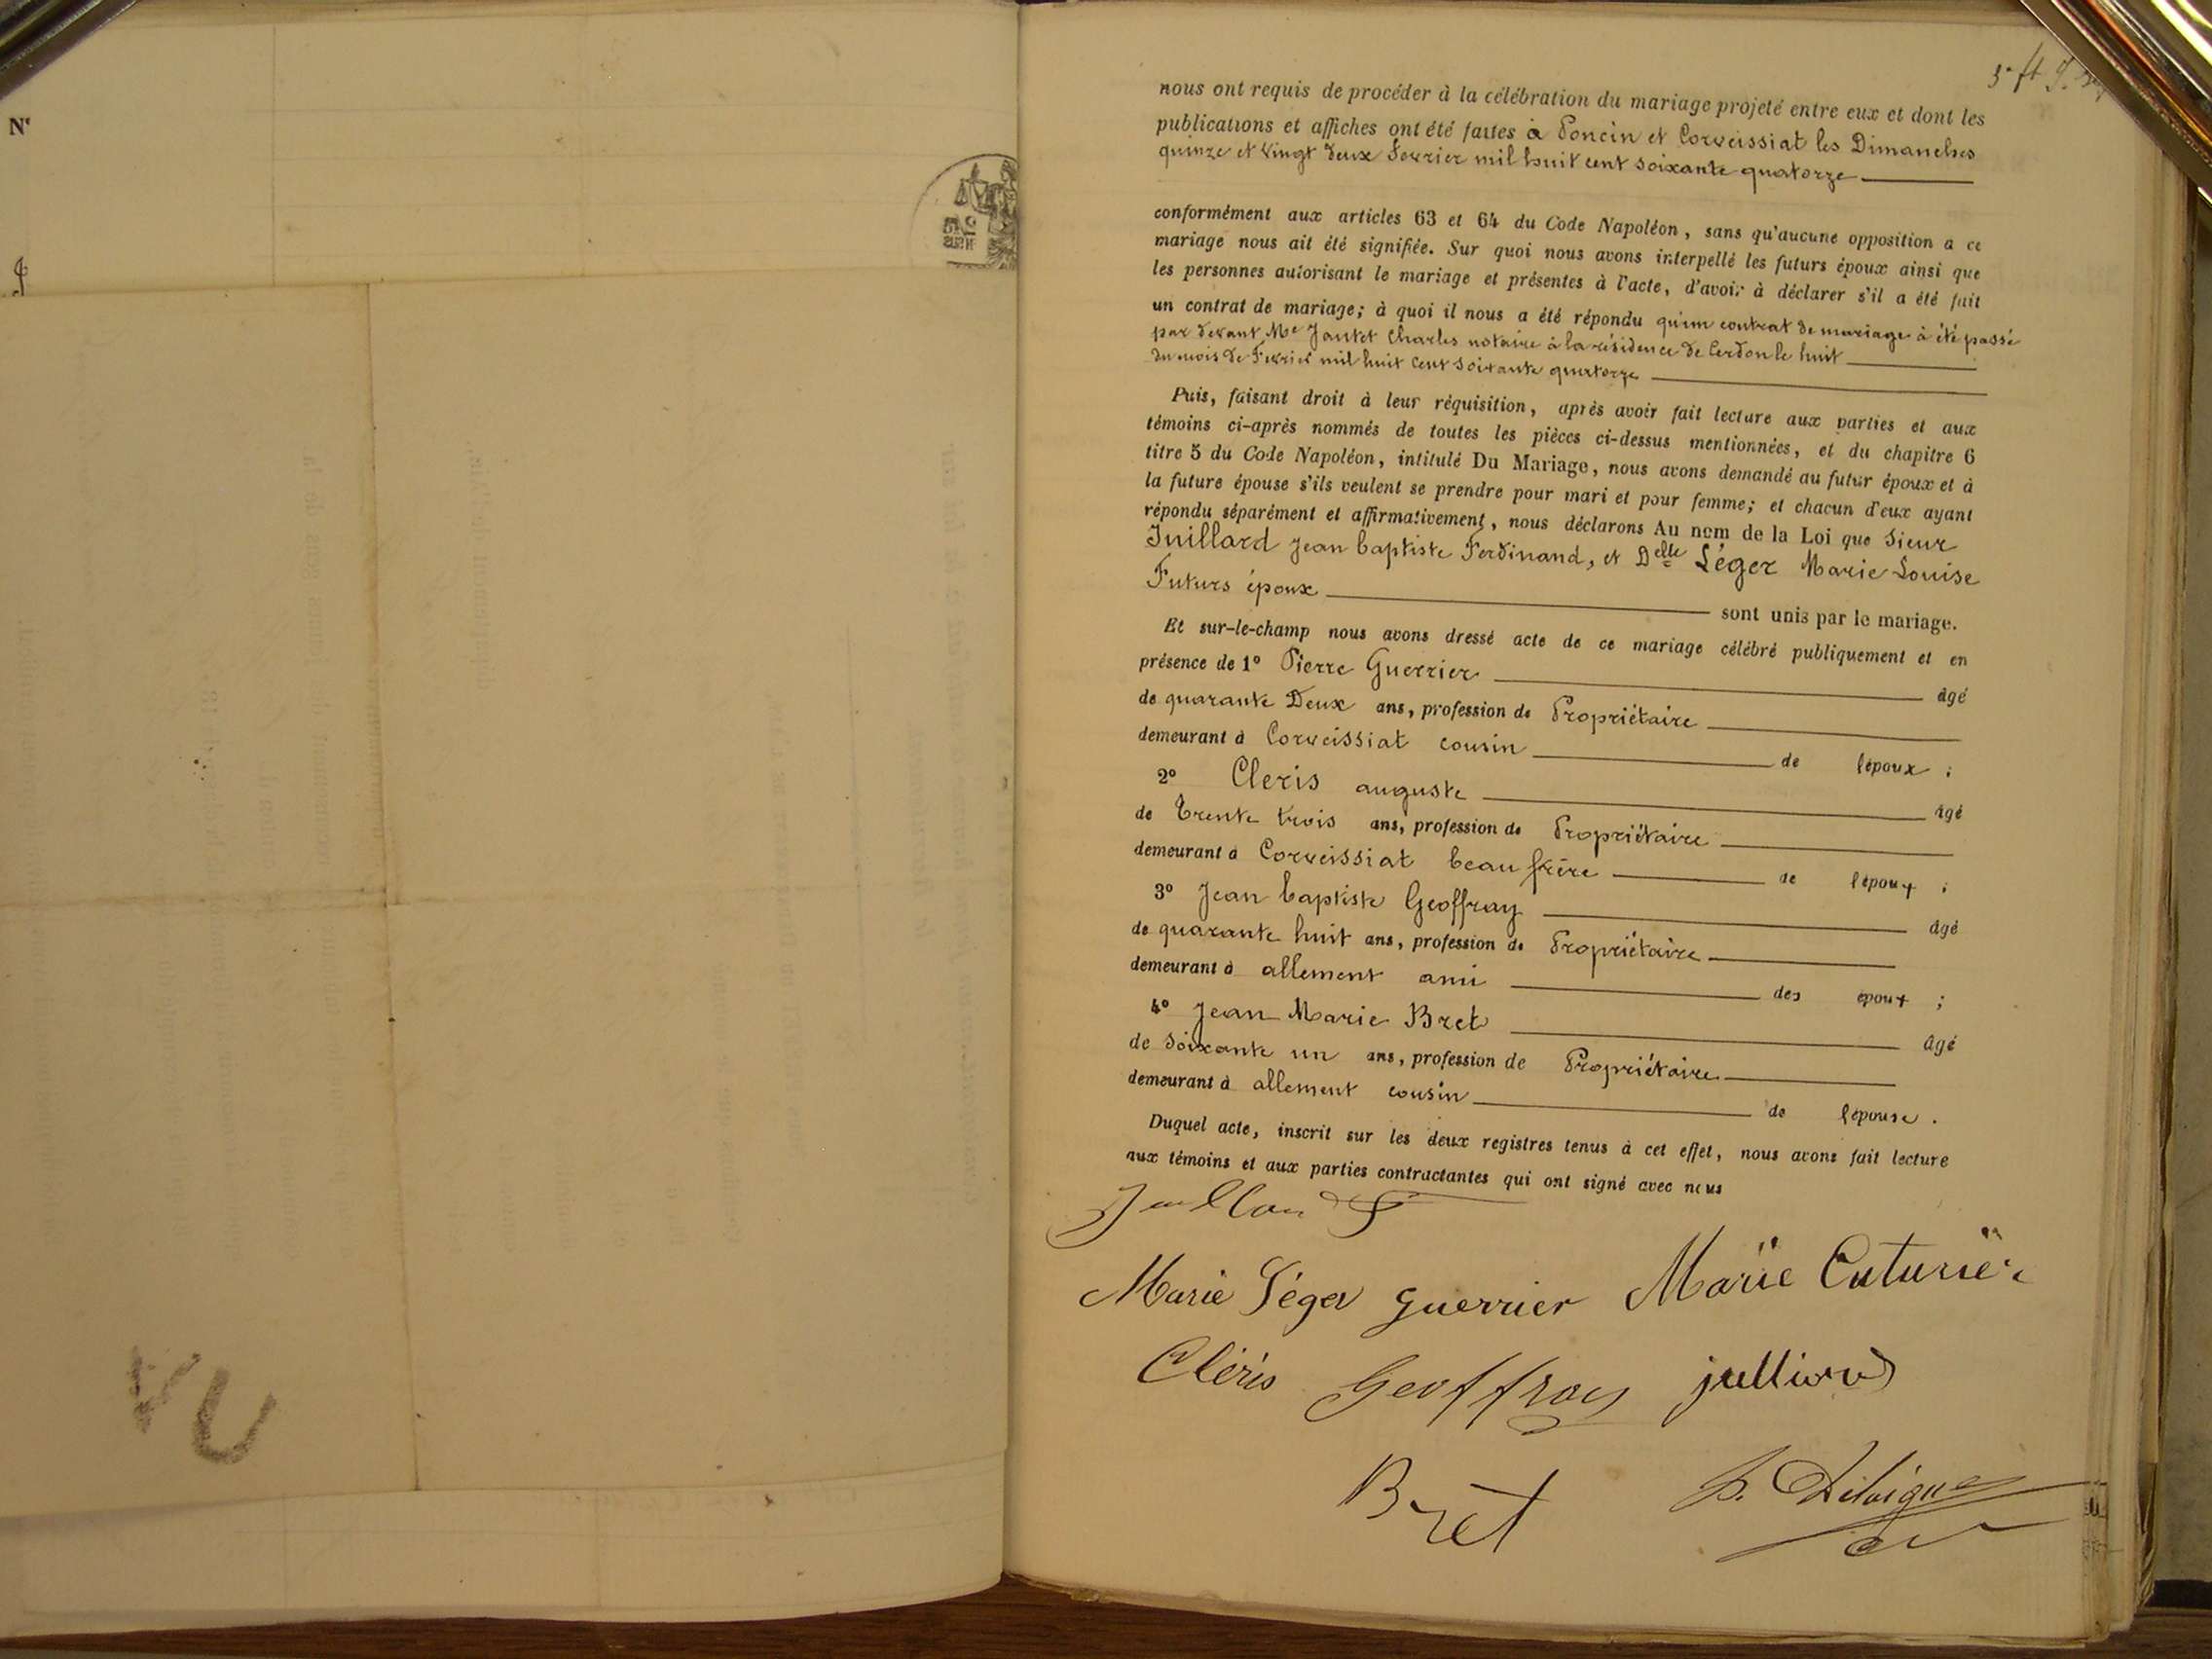 Nº
VU
nous ont requis de procéder à la célébration du mariage projeté entre eux et dont les
publications et affiches ont été faites à Poncin et Corveissiat les Dimanches
quinze et vingt deux Fevrier mil huit cent soixante quatorze
conformément aux articles 63 et 64 du Code Napoléon, sans qu'aucune opposition a ce
mariage nous ait été signifiée. Sur quoi nous avons interpellé les futurs époux ainsi que
les personnes autorisant le mariage et présentes à l'acte, d'avoir à déclarer s'il a été fait
un contrat de mariage; à quoi il nous a été répondu qu'un contrat de mariage à été passé
par devant Me Jantet Charles notaire à la résidence de Cerdon le huit
du mois de Fevrier mil huit cent soixante quatorze
Puis, faisant droit à leur réquisition, après avoir fait lecture aux parties et aux
témoins ci-après nommés de toutes les pièces ci-dessus mentionnées, et du chapitre 6
titre 5 du Code Napoléon, intitulé Du Mariage, nous avons demandé au futur époux et à
la future épouse s'ils veulent se prendre pour mari et pour femme; et chacun d'eux ayant
répondu séparément et affirmativement, nous déclarons Au nom de la Loi que Sieur
Juillard Jean baptiste Ferdinand, et Delle Léger Marie Louise
Futurs époux sont unis par le mariage.
Et sur-le-champ nous avons dressé acte de ce mariage célébré publiquement et en
présence de 1º Pierre Guerrier âgé
de quarante Deux ans, profession de Propriétaire
demeurant à Corveissiat cousin de lépoux ;
2º Cleris auguste âgé
de Trente trois ans, profession de Propriétaire
demeurant à Corveissiat beau frère de lépoux ;
3º Jean baptiste Geoffray âgé
de quarante huit ans, profession de Propriétaire
demeurant à allement ami des époux ;
4º Jean Marie Bret âgé
de soixante un ans, profession de Propriétaire
demeurant à allement cousin de lépouse .
Duquel acte, inscrit sur les deux registres tenus à cet effet, nous avons fait lecture
aux témoins et aux parties contractantes qui ont signé avec nous
Marie Léger Guerrier Marie Cuturier
Cléris Geoffray juillard
Bret